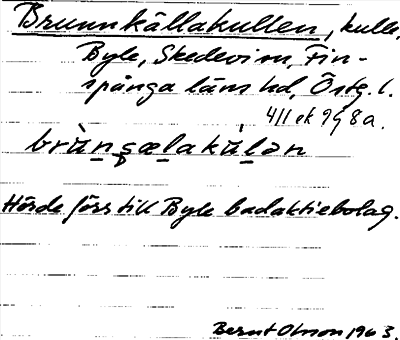 Brunnkällakullen, kulle,
Byle, Skedevi sn, Fin-
spånga läns hd, Östg. l.
4/1 ek 9G 8a.
brùn̠ɕæl̠akùl̠ən
Hörde förr till Byle badaktiebolag.
Bernt Olsson 1963.